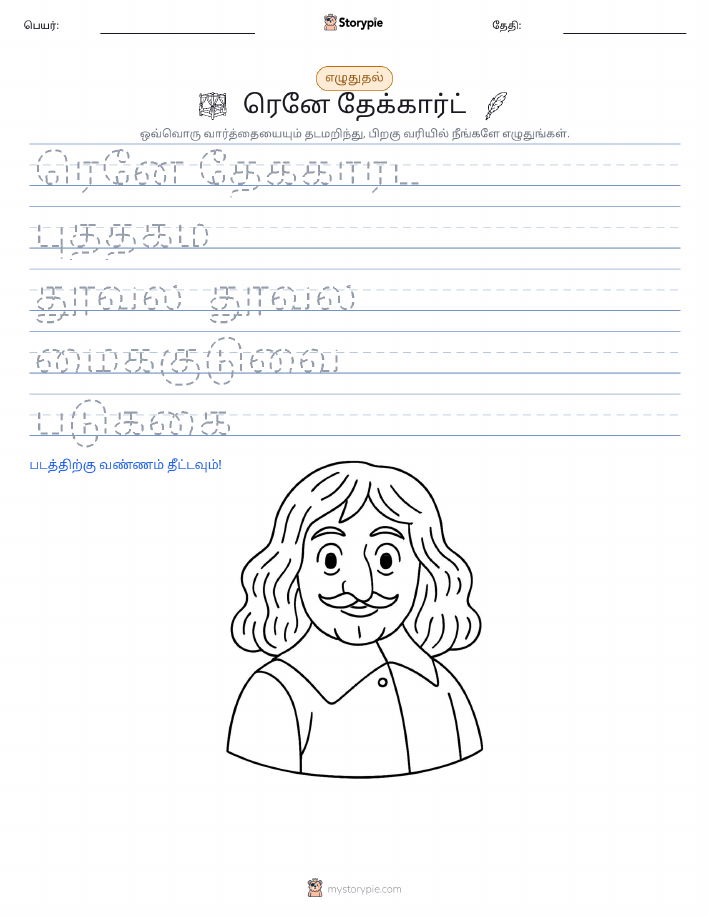 பெயர்:
Storypie
தேதி:
எழுதுதல்
ரெனே தேக்கார்ட்
ஒவ்வொரு வார்த்தையையும் தடமறிந்து, பிறகு வரியில் நீங்களே எழுதுங்கள்.
ரெனே தேககாரட
புததகம
தூவல் தூவல்
மைககுடுவை
படுககை
படத்திற்கு வண்ணம் தீட்டவும்!
mystorypie.com